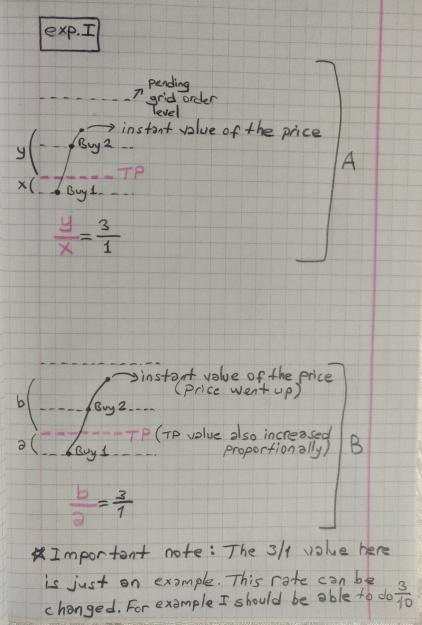 exp.I
pending
grid order
level
instant value of the price
y
Buy 2
TP
x
Buy 1
A
y/x = 3/1
instant value of the price
(Price went up)
b
Buy 2
TP (TP value also increased
proportionally)
a
Buy 1
B
b/a = 3/1
* Important note: The 3/1 value here
is just an example. This rate can be
changed. For example I should be able to do 3/10